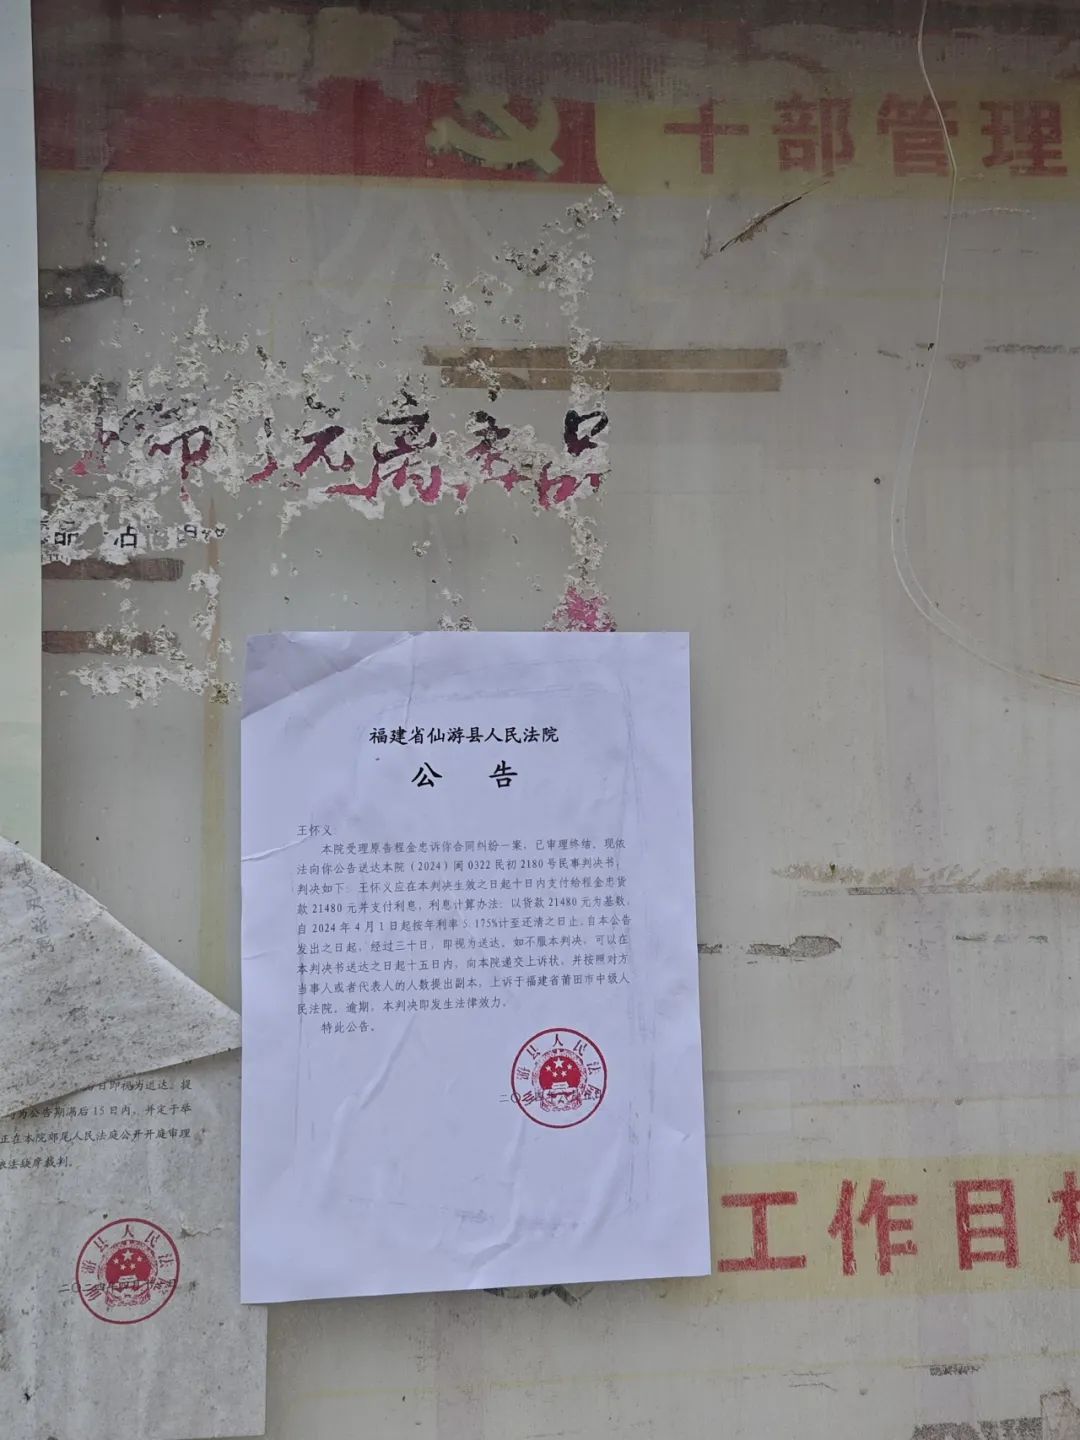 干部管理
远离毒品
福建省仙游县人民法院
公 告
王怀义:
本院受理原告程金忠诉你合同纠纷一案，已审理终结。现依
法向你公告送达本院（2024）闽0322民初2180号民事判决书，
判决如下：王怀义应在本判决生效之日起十日内支付给程金忠货
款21480元并支付利息，利息计算办法：以货款21480元为基数，
自2024年4月1日起按年利率5.175%计至还清之日止。自本公告
发出之日起，经过三十日，即视为送达。如不服本判决，可以在
本判决书送达之日起十五日内，向本院递交上诉状，并按照对方
当事人或者代表人的人数提出副本，上诉于福建省莆田市中级人
民法院。逾期，本判决即发生法律效力。
特此公告。
游县人民法院
日即视为送达。提
为公告期满后15日内，并定于举
正在本院郊尾人民法庭公开开庭审理
依法缺席裁判。
游县人民法院
工作目